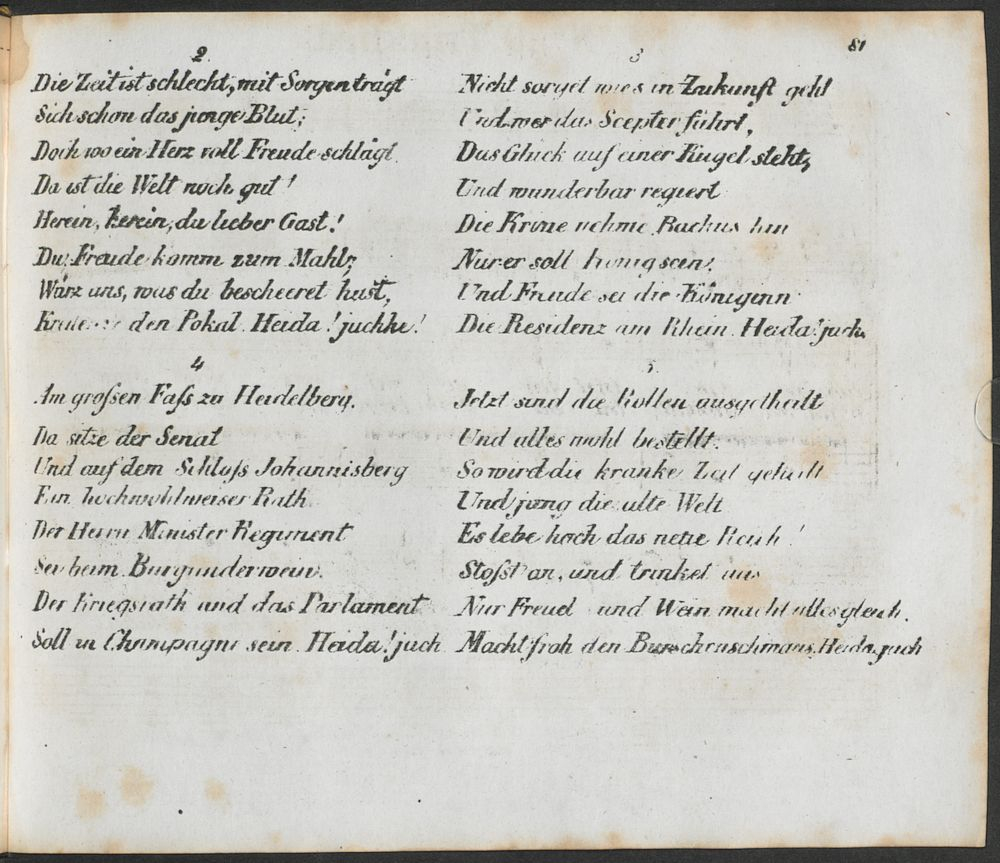 81
2
Die Zeit ist schlecht, mit Sorgen trägt
Sich schon das junge Blut;
Doch wo ein Herz voll Freude schlägt
Da ist die Welt noch gut!
Herein, herein, du lieber Gast!
Du, Freude komm zum Mahl;
Würz uns, was du bescheeret hast,
den Pokal. Heida! juchhe!
3
Nicht sorget wies in Zukunft geht
Und wer das Scepter führt,
Das Glück auf einer Kugel steht,
Und wunderbar regiert
Die Krone nehme Bachus hin
Nur er soll König sein.
Und Freude sei die Königinn
Die Residenz am Rhein. Heida! juch
4
Am grossen Fass zu Heidelberg.
Da sitze der Senat
Und auf dem Schloss Johannisberg
Ein hochwohlweiser Rath
Der Herrn Minister Regiment
Sei beim Burgunderwein.
Der Kriegsrath und das Parlament
Soll in Champagne sein. Heida! juch
5
Jetzt sind die Rollen ausgetheilt
Und alles wohl bestellt.
So wird die kranke Zeit geheilt
Und jung die alte Welt
Es lebe hoch das neue Reich!
Stosst an, und trinket aus
Nur Freud und Wein macht alles gleich.
Macht froh den Burschenschmaus. Heida juch